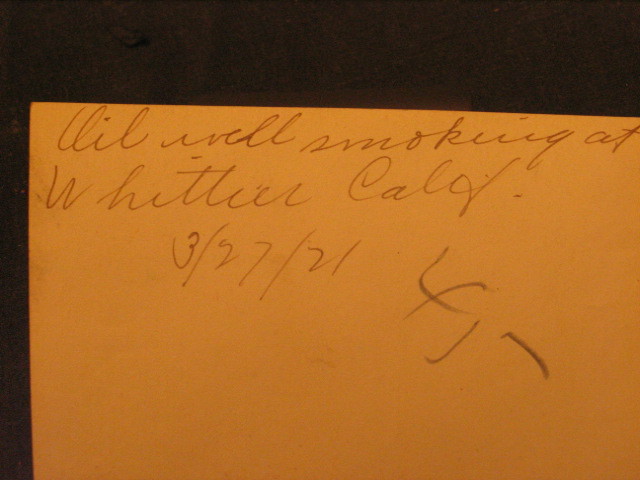 Oil well smoking at
Whittier Calif.
3/27/21